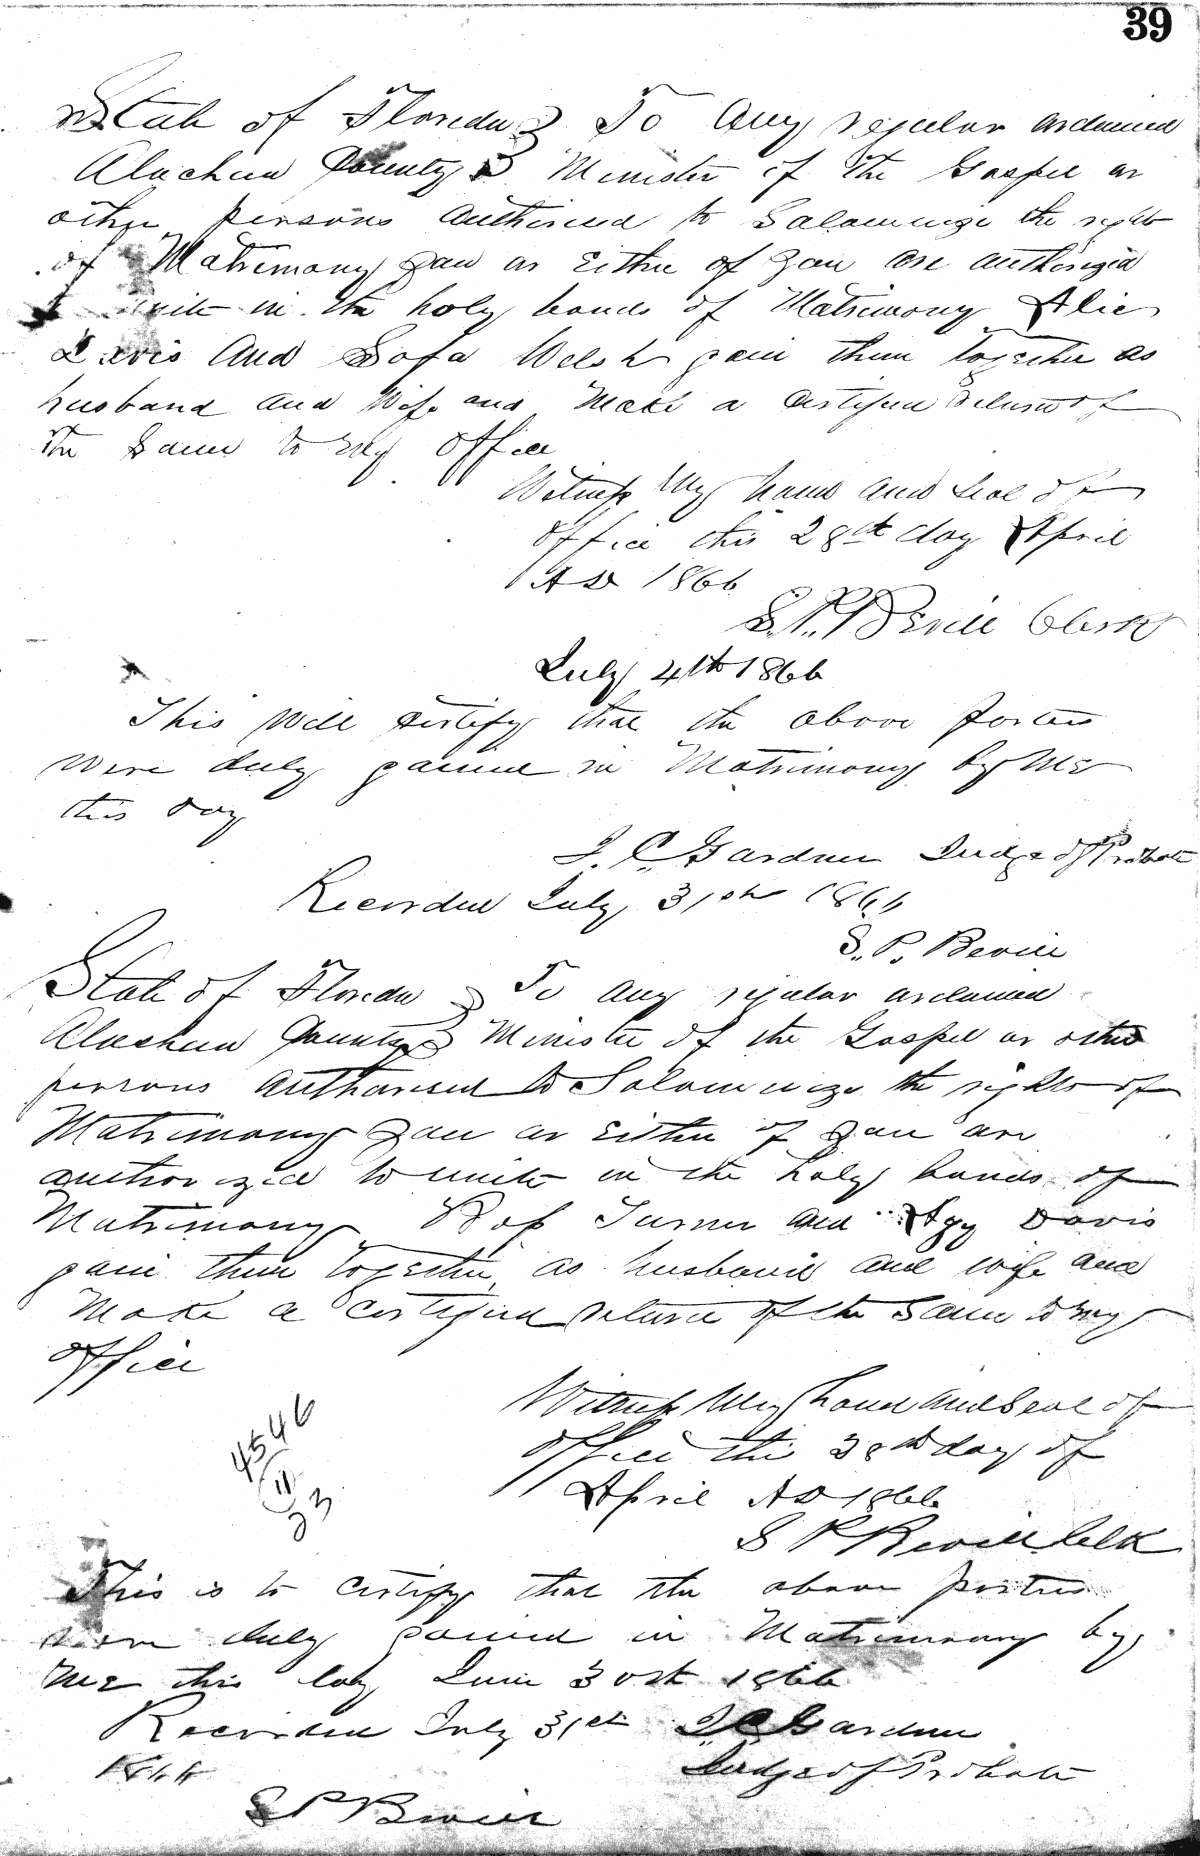 39
State of Florida } To Any regular ordained
Alachua County } Minister of the Gospel or
other persons authorised to Salemnize the rights
of Matrimony you or Either of you are authorized
unite in the holy bonds of Matrimony
and Sofa Welsh join them together as
husband and Wife and Make a certified return of
the Same to my office
Witness My hand and seal of
office this 28th day April
AD 1866
S. P. Bevill Clerk
July 4th 1866
This Will certify that the above parties
Were duly joined in Matrimony by Me
this day
J. C. Gardner Judge of Probate
Recorded July 31st 1866
S. P. Bevill
State of Florida } To any regular ordained
Alachua County } Minister of the Gospel or other
persons authorised to Solemnize the rights of
Matrimony you or Either of you are
authorized to unite in the holy bonds of
Matrimony Ross Turner and Agy Davis
join them together as husband and wife and
Make a certified return of the Same to my
office
Witness My hand and Seal of
office this 28th day of
April AD 1866
4546
11
23
S P Bevill Clk
This is to certify that the above parties
were duly joined in Matrimony by
Me this day June 30th 1866
Recorded July 31st J C Gardner
1866 Judge of Probate
S P Bevill